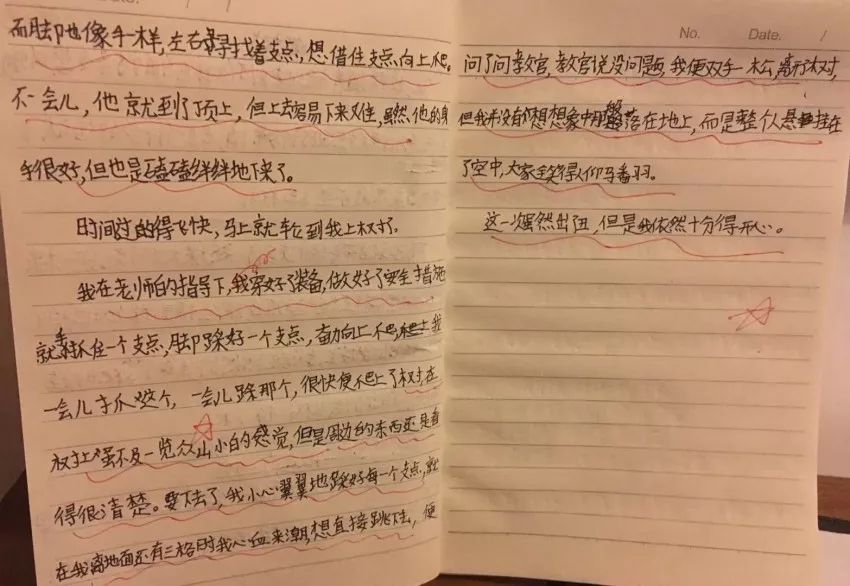 而脚也像手一样,左右寻找着支点,想借住支点向上爬。
不一会儿,他就到了顶上,但上去容易下来又难,虽然他的身
手很好,但也是磕磕绊绊地下来了。
时间过的得飞快,马上就轮到我上树了。
我在老师的指导下,我穿好了装备,做好了安全措施
就手抓住一个支点,脚踩好一个支点,奋力向上爬,我
一会儿抓这个,一会儿踩那个,很快便爬上了树,在
树上虽不及一览众山小的感觉,但是周边的东西还是看
得很清楚。要下去了,我小心翼翼地踩好每一个支点,就
在我离地面还有三格时我心血来潮,想直接跳下去,便
No. Date. /
问了问教官,教官说没问题,我便双手一松,离开了树,
但我并没有想象中那样落在地上,而是整个人悬挂在
了空中,大家笑得人仰马翻。
这一次虽然出丑,但是我依然十分得开心。